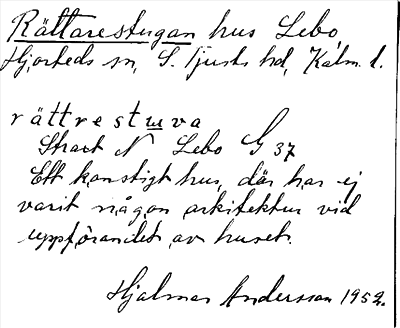 Rättarestugan hus Lebo
Hjorteds sn, S. Tjusts hd, Kalm. l.
rättrestuva
Strax N Lebo G 37
Ett konstigt hus, där har ej
varit någon arkitektur vid
uppförandet av huset.
Hjalmar Andersson 1952.